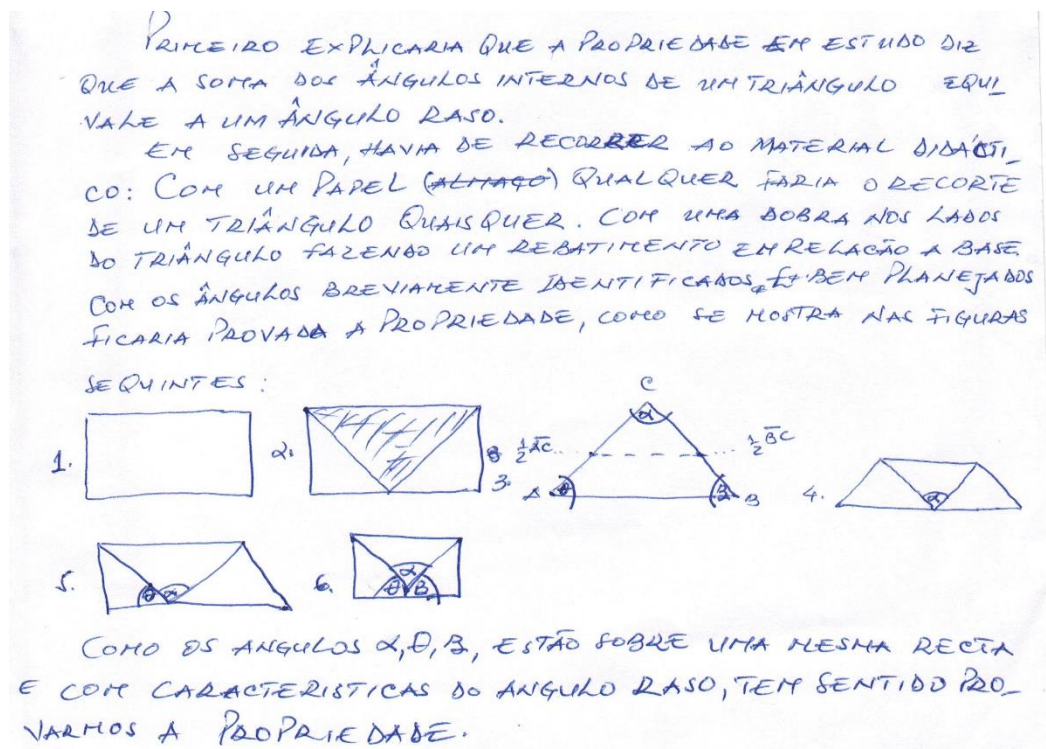 PRIMEIRO EXPLICARIA QUE A PROPRIEDADE EM ESTUDO DIZ
QUE A SOMA DOS ÂNGULOS INTERNOS DE UM TRIÂNGULO EQUI_
VALE A UM ÂNGULO RASO.
EM SEGUIDA, HAVIA DE RECORRER AO MATERIAL DIDÁCTI_
CO: COM UM PAPEL (ALMAÇO) QUALQUER FARIA O RECORTE
DE UM TRIÂNGULO QUAISQUER. COM UMA DOBRA NOS LADOS
DO TRIÂNGULO FAZENDO UM REBATIMENTO EM RELAÇÃO A BASE.
COM OS ÂNGULOS BREVIAMENTE IDENTIFICADOS, E BEM PLANEJADOS
FICARIA PROVADA A PROPRIEDADE, COMO SE MOSTRA NAS FIGURAS
SEQUINTES:
C
α
1. 2. 3. ½ AC ½ BC
A θ B B 4. α
5. θ α 6. α θ B
COMO OS ANGULOS α, θ, B, ESTÃO SOBRE UMA MESMA RECTA
E COM CARACTERISTICAS DO ANGULO RASO, TEM SENTIDO PRO_
VARMOS A PROPRIEDADE.